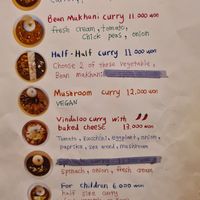 Bean Makhani curry 11.000 won
fresh cream, tomato,
chick peas, onion
Half-Half curry 11.000 won
Choose 2 of these vegetable,
Bean makhani
Mushroom curry 12.000 won
VEGAN
Vindaloo curry with
baked cheese 13.000 won
Tomato, zucchini, eggplant, onion,
paprika, sea weed, mushroom
Spinach, onion, fresh cream
For children 6.000 won
half size curry